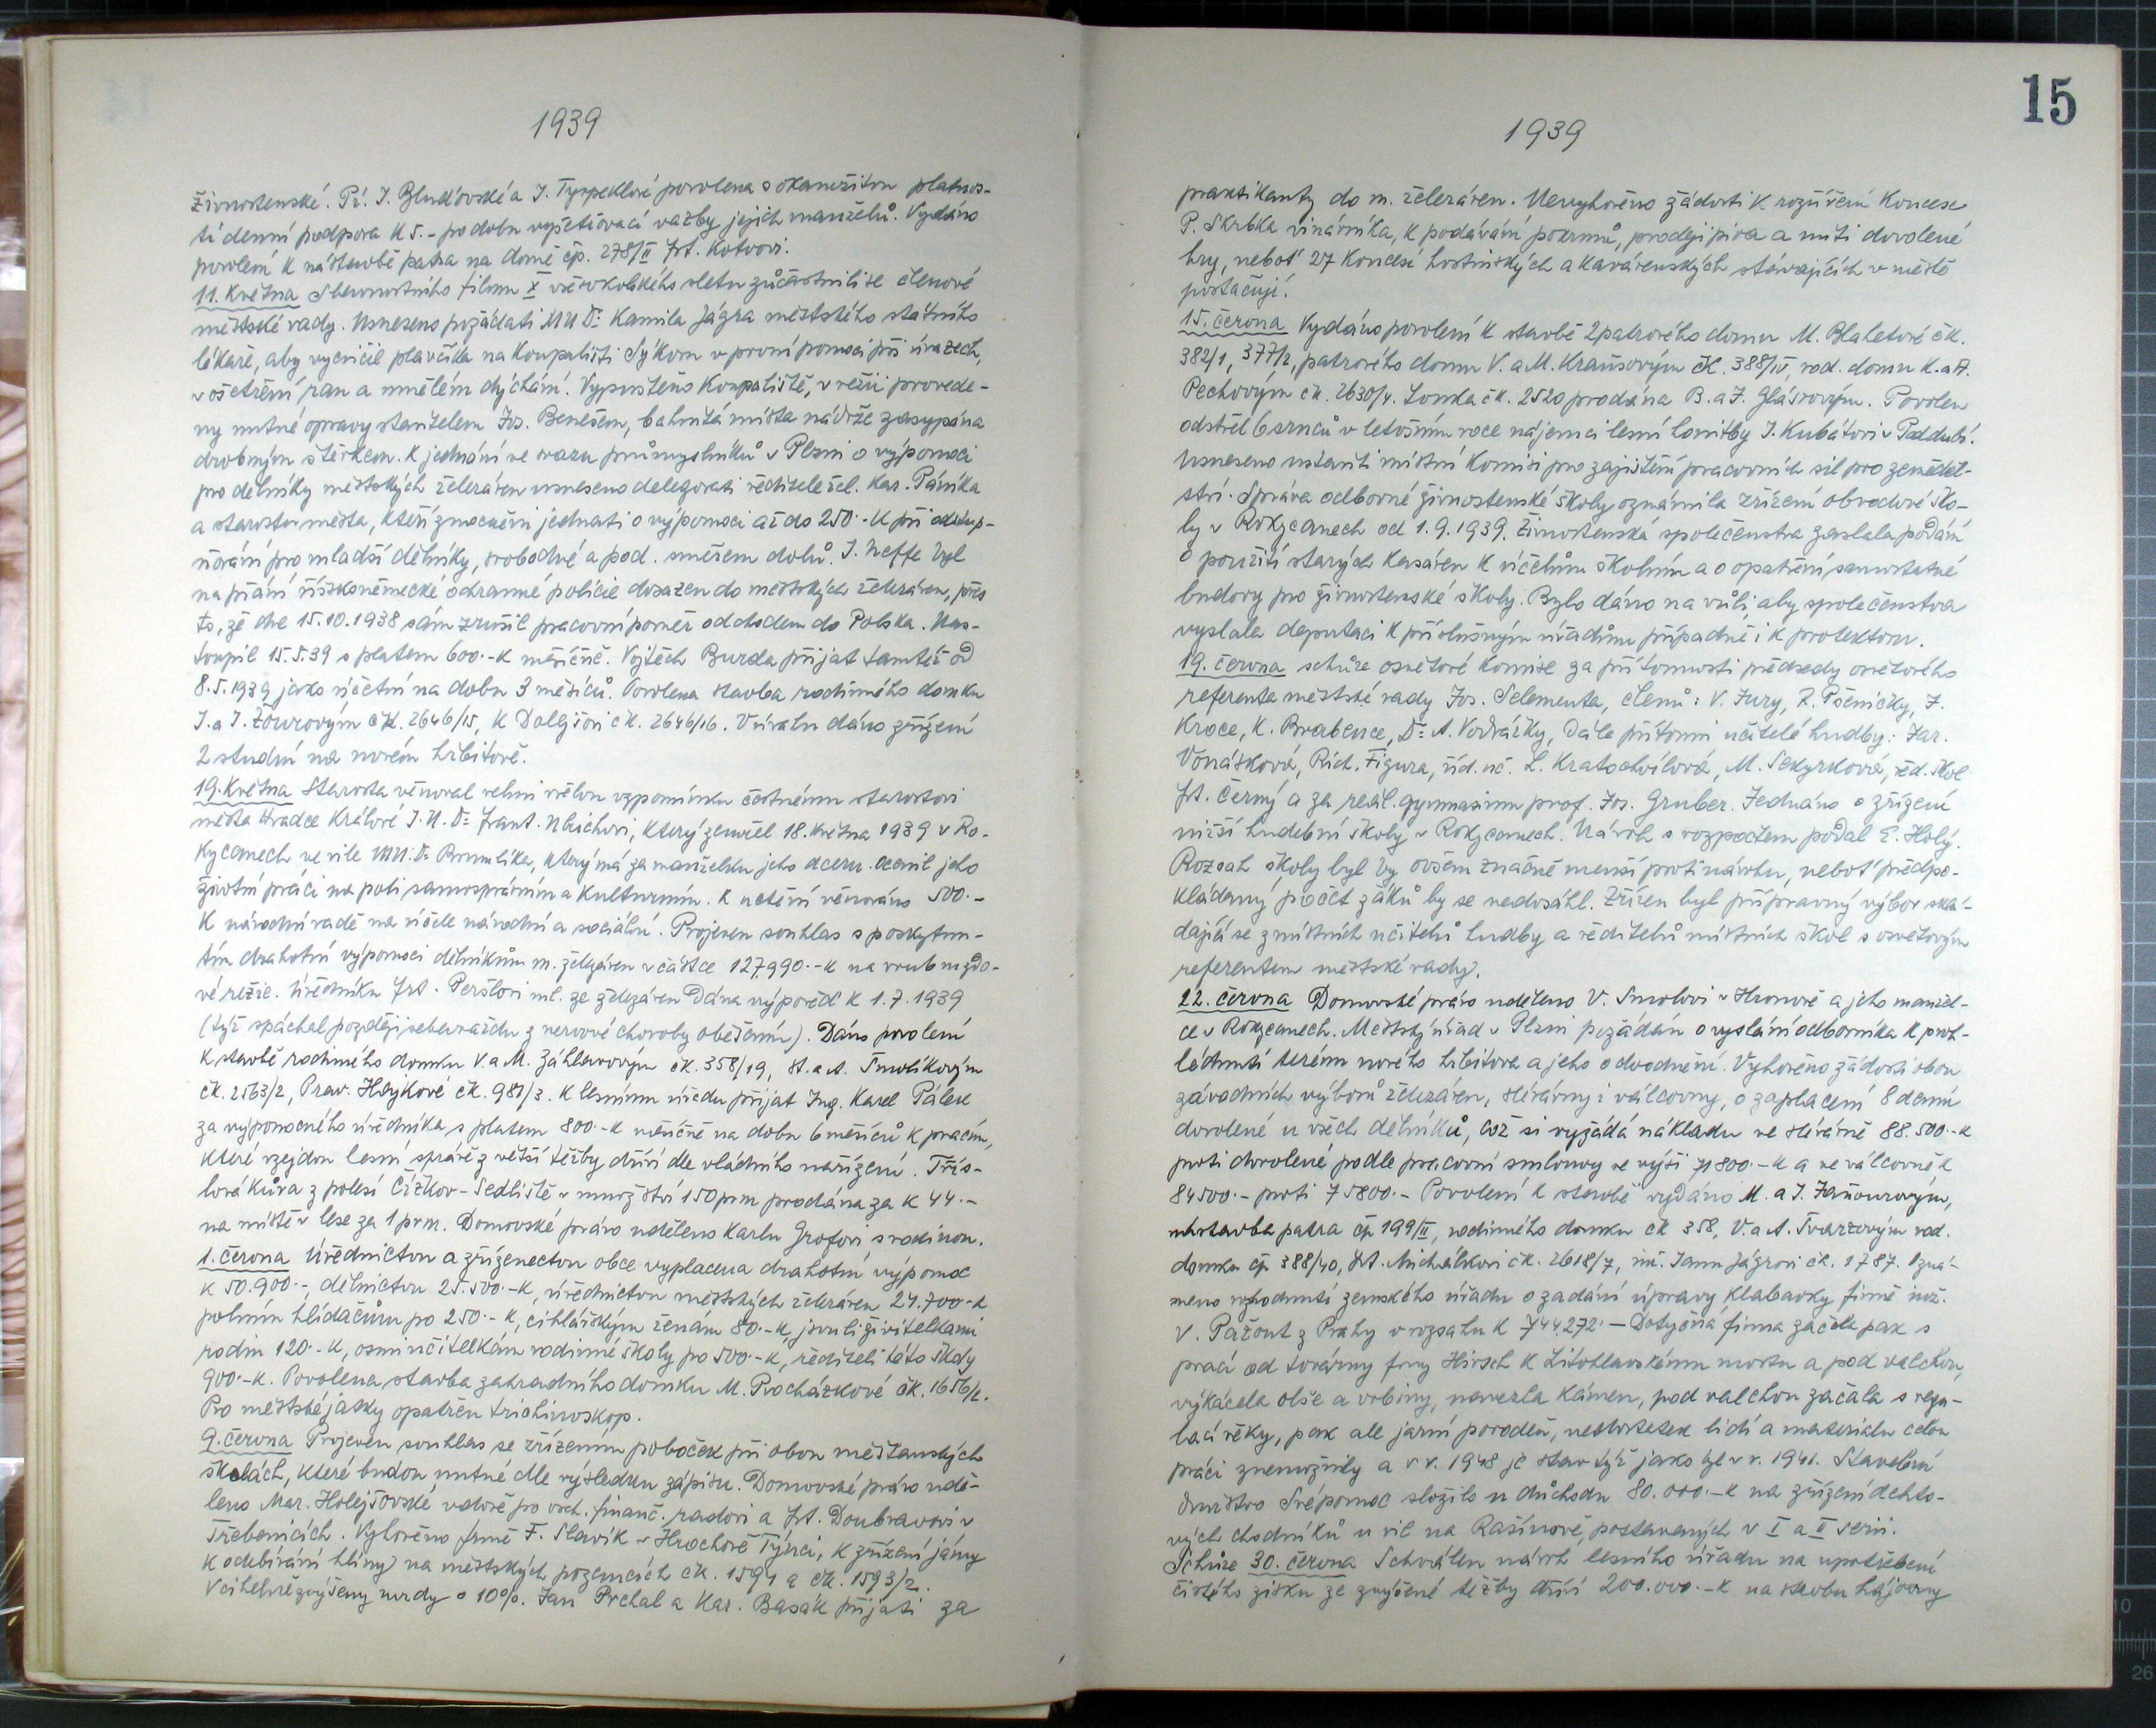 1939
živnostenské. Pí. J. Bluďovské a J. Tyrpeklové povolena s okamžitou platnos-
tí denní podpora K 5.- po dobu vyšetřovací vazby jejich manželů. Vydáno
povolení k nástavbě patra na domě čp. 278/II Frt. Kotvovi.
11. května Slavnostního filmu X všesokolského sletu zúčastnili se členové
městské rady. Usneseno požádati MUDr Kamila Jágra městského státního
lékaře, aby vycvičil plavčíka na koupališti Sýkoru v první pomoci při úrazech,
v ošetření ran a umělém dýchání. Vypuštěno koupaliště, v režii provede-
ny nutné opravy stavitelem Jos. Benešem, bahnitá místa nádrže zasypána
drobným štěrkem. K jednání ve svazu průmyslníků v Plzni o výpomoci
pro dělníky městských železáren usneseno delegovati ředitele žel. Kar. Páníka
a starostu města, kteří zmocněni jednati o výpomoci až do 250.-K při odstup-
ňování pro mladší dělníky, svobodné a pod. směrem dolů. J. Neffe byl
na přání říšskoněmecké ochranné policie dosazen do městských železáren, přes
to, že dne 15.10.1938 sám zrušil pracovní poměr odchodem do Polska. Nas-
toupil 15.5.39 s platem 600.-K měsíčně. Vojtěch Burda přijat tamtéž od
8.5.1939 jako účetní na dobu 3 měsíců. Povolena stavba rodinného domku
J. a J. Žourovým čk. 2646/15, K Dolejšovi čk. 2646/16. V úvahu dáno zřízení
2 studní na novém hřbitově.
19. května Starosta věnoval velmi vřelou vzpomínku čestnému starostovi
města Hradce Králové J.U.Dr Frant. Ulrichovi, který zemřel 18. května 1939 v Ro-
kycanech ve vile MUDr Brumlíka, který má za manželku jeho dceru. Ocenil jeho
životní práci na poli samosprávním a kulturním. K uctění věnováno 500.-
K národní radě na účele národní a sociální. Projeven souhlas s poskytnu-
tím drahotní výpomoci dělníkům m. železáren v částce 127.990.-K na vrub mzdo-
vé režie. Úředníku Frt. Peršlovi ml. ze železáren dána výpověď k 1.7.1939
(týž spáchal později sebevraždu z nervové choroby oběšením). Dáno povolení
k stavbě rodinného domku V. a M. Záhlavovým čk. 358/19, St. a A. Smolíkovým
čk. 2563/2, Prav. Hájkové čk. 981/3. K lesnímu úřadu přijat Ing. Karel Pálek
za výpomocného úředníka s platem 800.-K měsíčně na dobu 6 měsíců k pracím,
které vzejdou lesní správě z větší těžby dříví dle vládního nařízení. Třís-
lová kůra z polesí Čížkov-Sedliště v množství 150 prm prodána za K 44.-
na místě v lese za 1 prm. Domovské právo uděleno Karlu Grofovi s rodinou.
1. června Úřednictvu a zřízenectvu obce vyplacena drahotní výpomoc
K 50.900.-, dělnictvu 25.500.-K, úřednictvu městských železáren 24.700-K
polním hlídačům po 250.-K, cihlářským ženám 80.-K, jsou-li živitelkami
rodin 120.-K, osmi učitelkám rodinné školy po 500.-K, řediteli této školy
900.-K. Povolena stavba zahradního domku M. Procházkové čk. 1656/2.
Pro městské jatky opatřen trichinoskop.
9. června Projeven souhlas se zřízením poboček při obou měšťanských
školách, které budou nutné dle výsledku zápisu. Domovské právo udě-
leno Mar. Holejšovské, vdově po vrch. finanč. radovi a Frt. Doubravovi v
Třebenicích. Vyhověno firmě F. Slavík v Hrochově Týnci, k zřízení jámy
k odebírání hlíny na městských pozemcích čk. 1591 a čk. 1593/2.
V cihelně zvýšeny mzdy o 10%. Jan Prchal a Kar. Basák přijati za
15
1939
praktikanty do m. železáren. Nevyhověno žádosti k rozšíření koncese
P. Skrbka vinárníka, k podávání pokrmů, prodeji piva a míti dovolené
hry, neboť 27 koncesí hostinských a kavárenských stávajících v městě
postačují.
15. června Vydáno povolení k stavbě 2patrového domu M. Blahetové čk.
382/1, 377/2, patrového domu V. a M. Kraušovým čk. 388/IV, rod. domu K. a A.
Pechovým čk. 2630/4. Louka čk. 2520 prodána B. a J. Glásrovým. Povolen
odstřel 6 srnců v letošním roce nájemci lesní honitby J. Kubátovi v Poddubí.
Usneseno ustaviti místní komisi pro zajištění pracovních sil pro zeměděl-
ství. Správa odborné živnostenské školy oznámila zřízení obvodové ško-
ly v Rokycanech od 1.9.1939. Živnostenská společenstva zaslala podání
o použití starých kasáren k účelům školním a o opatření samostatné
budovy pro živnostenské školy. Bylo dáno na vůli, aby společenstva
vyslala deputaci k příslušným úřadům případně i k protektoru.
19. června schůze osvětové komise za přítomnosti předsedy osvětového
referenta městské rady Jos. Selementa, členů: V. Jury, R. Pšeničky, J.
Kroce, K. Brabence, Dr A. Vodrážky, dále přítomni učitelé hudby: Jar.
Vonásková, Rich. Figura, říd. uč. L. Kratochvílová, M. Sekyrková, řed. škol
Frt. Černý a za reál. gymnasium prof. Jos. Gruber. Jednáno o zřízení
nižší hudební školy v Rokycanech. Návrh s rozpočtem podal E. Holý.
Rozsah školy byl by ovšem značně menší proti návrhu, neboť předpo-
kládaný počet žáků by se nedosáhl. Zřízen byl přípravný výbor sklá-
dající se z místních učitelů hudby a ředitelů místních škol s osvětovým
referentem městské rady.
22. června Domovské právo uděleno V. Smolovi v Hronově a jeho manžel-
ce v Rokycanech. Městský úřad v Plzni požádán o vyslání odborníka k proh-
lédnutí terénu nového hřbitova a jeho odvodnění. Vyhověno žádosti obou
závodních výborů železáren, slévárny i válcovny, o zaplacení 8 denní
dovolené u všech dělníků, což si vyžádá nákladu ve slévárně 88.500.-K
proti dovolené podle pracovní smlouvy ve výši 71800.-K a ve válcovně K
84500.- proti 75800.- Povolení k stavbě vydáno M. a J. Zaňourovým,
nástavba patra čp 199/II, rodinného domku čk 358, V. a A. Švarzovým rod.
domku čp 388/40, Frt. Michálkovi čk. 2618/7, inž. Janu Jágrovi čk. 1787. Ozná-
meno rozhodnutí zemského úřadu o zadání úpravy Klabavky firmě inž.
V. Pažout z Prahy v rozsahu K 744.272.- Dotyčná firma začala pak s
prací od továrny firmy Hirsch k Litohlavskému mostu a pod valchou,
vykácela olše a vrbiny, navezla kámen, pod valchou začala s regu-
lací řeky, pak ale jarní povodeň, nedostatek lidí a materialu celou
práci znemožnily a v r. 1948 je stav týž jako byl v r. 1941. Stavební
družstvo Svépomoc složilo u důchodu 80.000.-K na zřízení dehto-
vých chodníků u vil na Rašínově, postavených v I a II serii.
Schůze 30. června Schválen návrh lesního úřadu na upotřebení
čistého zisku ze zvýšené těžby dříví 200.000.-K na stavbu hájovny